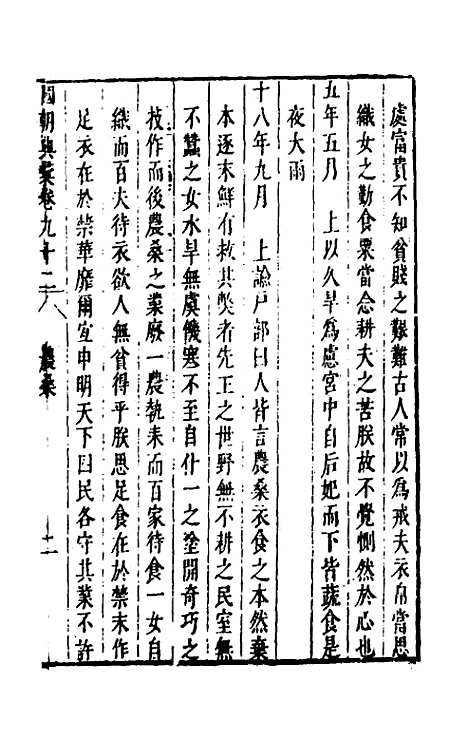 處富貴不知貧賤之艱難古人常以為戒夫衣帛當思
織女之勤食粟當念耕夫之苦朕故不覺惻然於心也
五年五月　上以久旱為慮宮中自后妃而下皆蔬食是
夜大雨
十八年九月　上諭戶部曰人皆言農桑衣食之本然棄
本逐末鮮有救其獘者先王之世野無不耕之民室無
不蠶之女水旱無虞饑寒不至自什一之塗開奇巧之
技作而後農桑之業廢一農執耒而百家待食一女自
織而百夫待衣欲人無貧得乎朕思足食在於禁末作
足衣在於禁華靡爾宜申明天下四民各守其業不許
國朝典彙卷九十二　農桑　十二